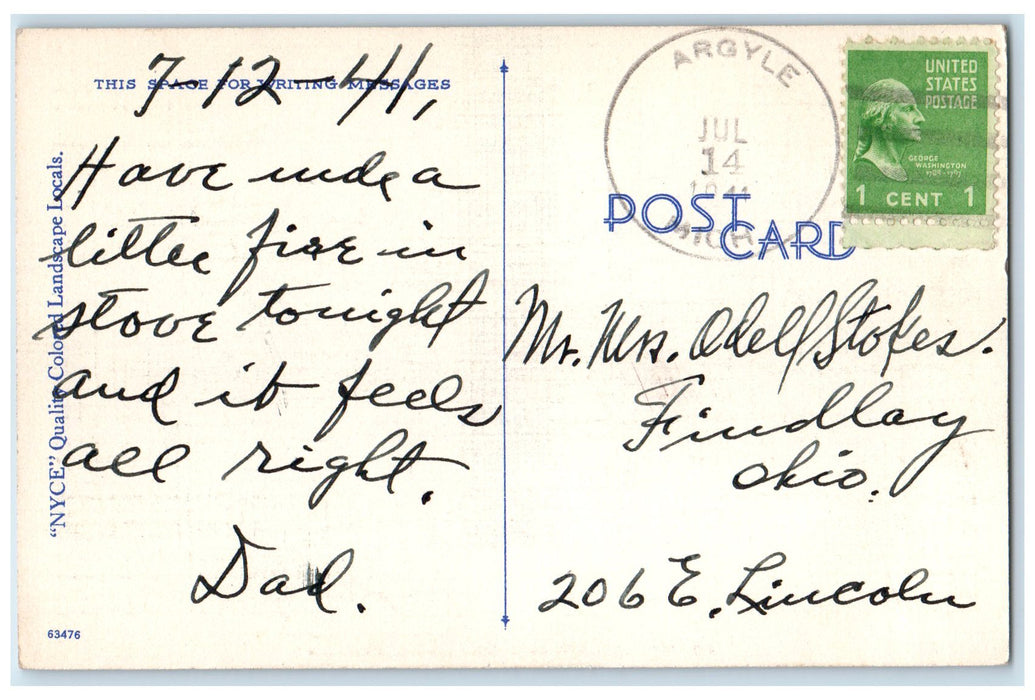 THIS SPACE FOR WRITING MESSAGES
7-12-41,
Have made a
little fire in
stove tonight
and it feels
all right.
Dad.
"NYCE" Quality Colored Landscape Locals.
63476
ARGYLE
JUL
14
1941
MICH.
UNITED
STATES
POSTAGE
GEORGE
WASHINGTON
1789-1797
1 CENT 1
POST
CARD
Mr. Mrs. Odell Stokes.
Findlay
Ohio.
206 E. Lincoln